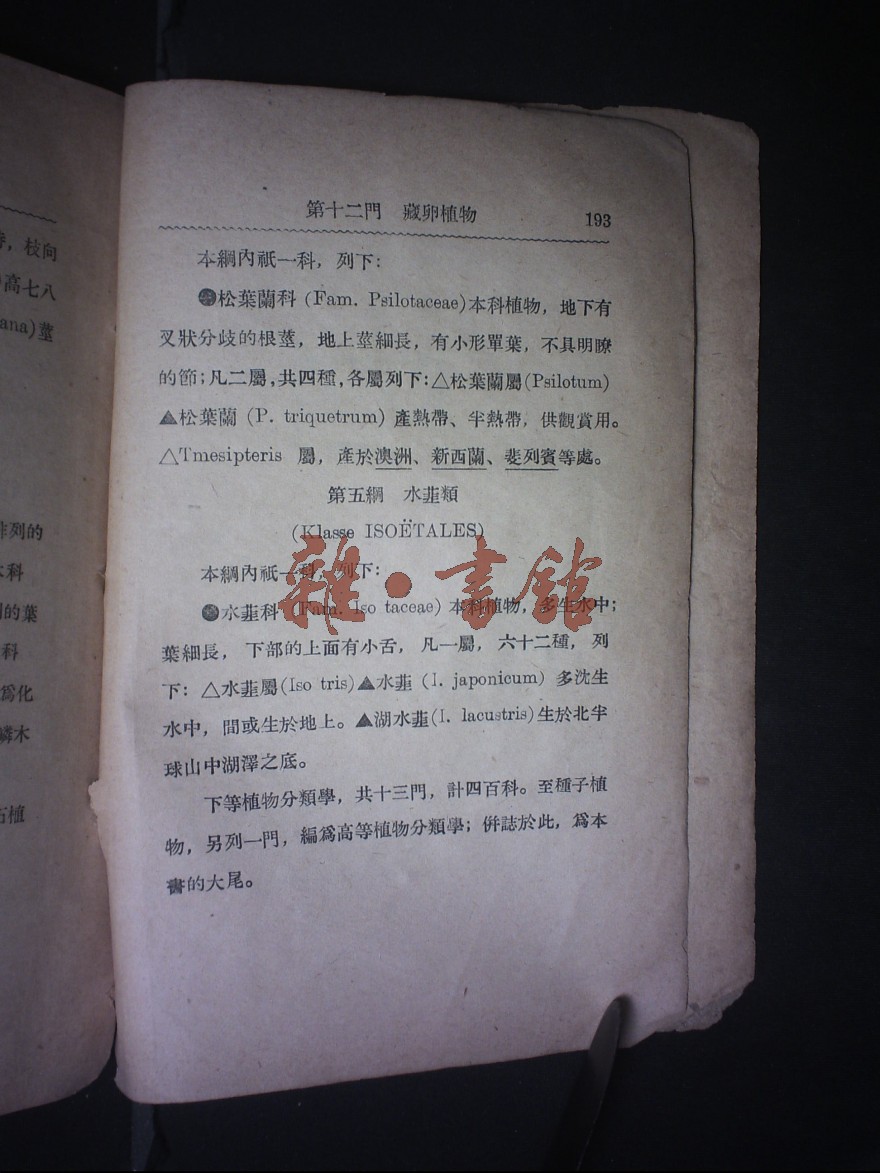 第十二門 藏卵植物 193
本綱內祇一科, 列下:
松葉蘭科 (Fam. Psilotaceae)本科植物, 地下有
叉狀分歧的根莖, 地上莖細長, 有小形單葉, 不具明瞭
的節; 凡二屬, 共四種, 各屬列下: △松葉蘭屬(Psilotum)
▲松葉蘭 (P. triquetrum) 產熱帶、半熱帶, 供觀賞用。
△Tmesipteris 屬, 產於澳洲、新西蘭、斐列賓等處。
第五綱 水韮類
(Klasse ISOËTALES)
本綱內祇一科, 列下:
水韮科 (Fam. Iso taceae) 本科植物, 多生水中;
葉細長, 下部的上面有小舌, 凡一屬, 六十二種, 列
下: △水韮屬(Iso tris)▲水韮 (I. japonicum) 多沈生
水中, 間或生於地上。▲湖水韮(I. lacustris)生於北半
球山中湖澤之底。
下等植物分類學, 共十三門, 計四百科。至種子植
物, 另列一門, 編爲高等植物分類學; 併誌於此, 爲本
書的大尾。
雜·書館
, 枝向
高七八
ana)莖
排列的
本科
的葉
科
爲化
鱗木
石植